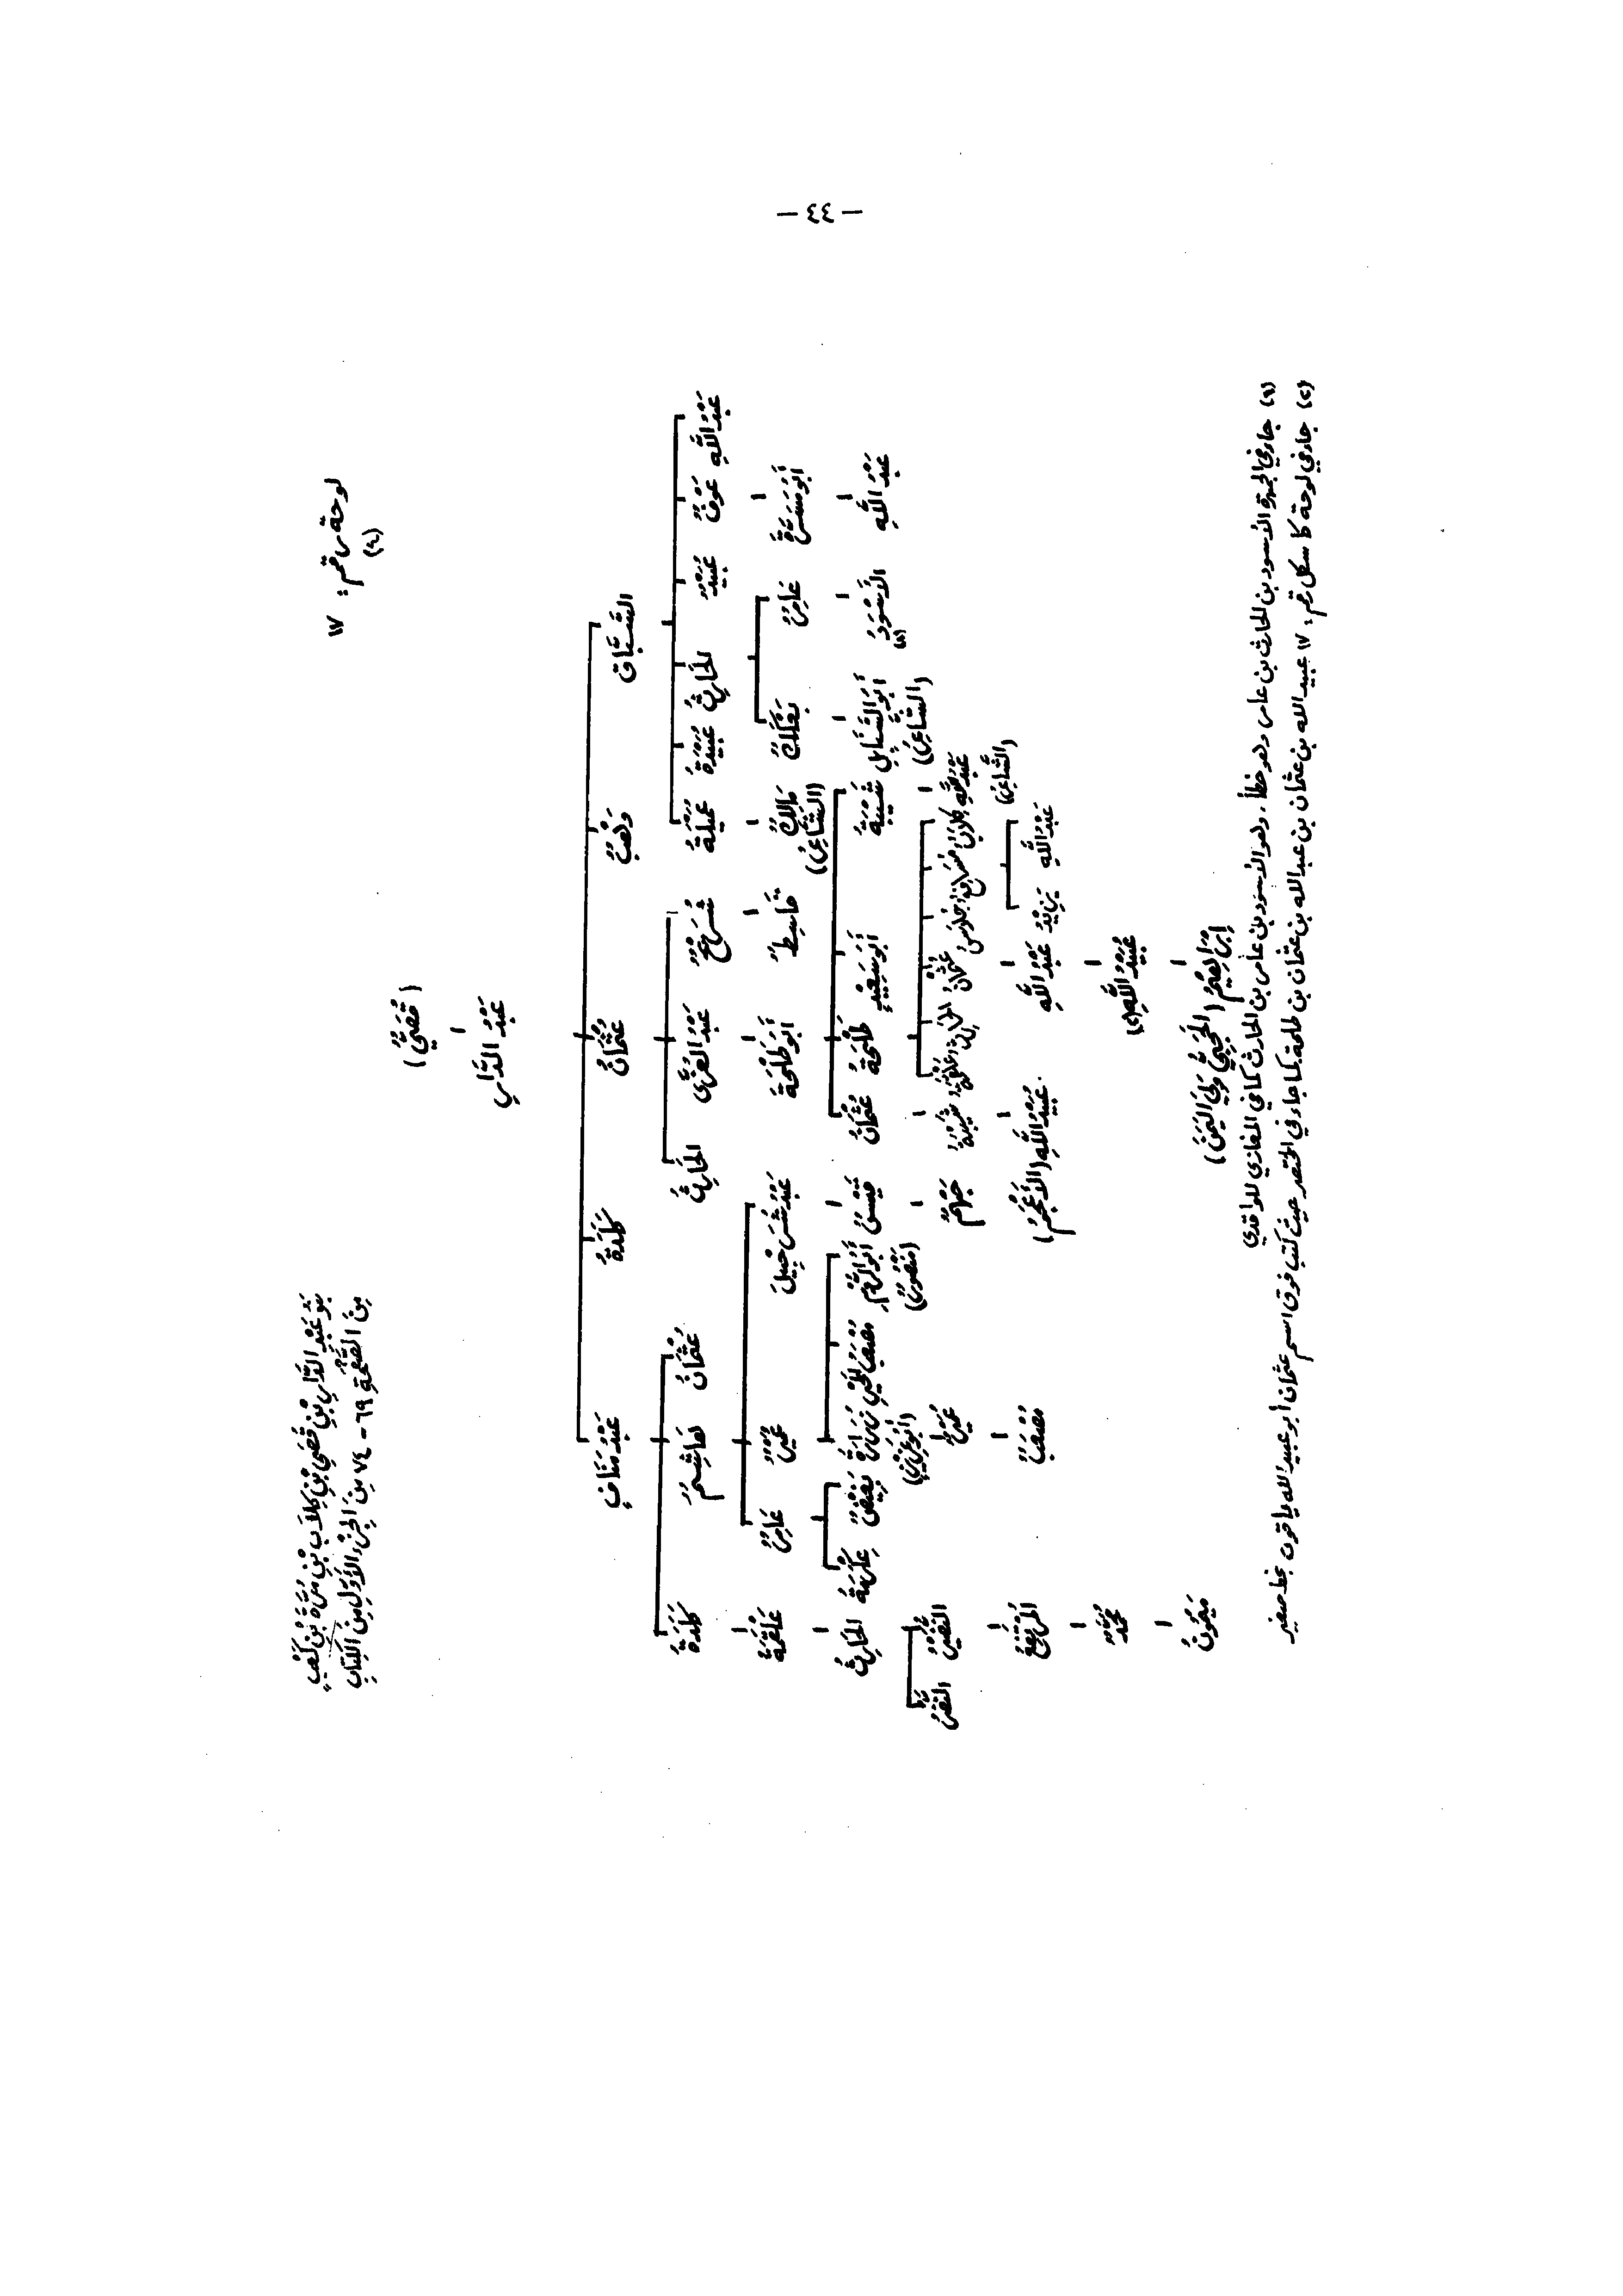 — ٤٤ —
لوحة رقم : ١٧
(٤)
بَنُو عَبْدِ الدَّارِ بْنِ قُصَيِّ بْنِ كِلَابِ بْنِ مُرَّةَ بْنِ كَعْبٍ
مِنَ الصَّفْحَةِ ٦٩ - ٧٤ مِنَ الجُزْءِ الأَوَّلِ مِنَ الكِتَابِ
( قُصَيٌّ )
عَبْدُ الدَّارِ
السَّبَّاق وَهْبٌ عُثْمَانُ كَلَدَةُ عَبْدُ مَنَافٍ
عَبْدُ اللَّهِ عَوْفٌ عُبَيْدٌ الحَارِثُ عُبَيْدَةُ عُمَيْلَةُ شُرَيْحٌ عَبْدُ العُزَّى الحَارِثُ عُثْمَانُ هَاشِمٌ كَلَدَةُ
أَبُو مَسَرَّةَ عَامِرٌ بَعْكَكٌ مَالِكٌ قَاسِطٌ أَبُو طَلْحَةَ عَبْدُ شُرَحْبِيلَ عُمَيْرٌ عَامِرٌ عَلْقَمَةُ
(الشَّاعِرُ)
عَبْدُ اللَّهِ الأَسْوَدُ أَبُو السَّنَابِلِ شَيْبَةُ أَبُو سَعِيْدٍ طَلْحَةُ عُثْمَانُ قَيْسٌ أَبُو الرُّومِ مصعب الخير زُرَارَةُ بَغِيْضٌ عِكْرِمَةُ الحَارِثُ
(١) (الشَّاعِرُ) (مَنْصُورٌ) (أَبُو عَزِيْزٍ)
عَبْدُ اللَّهِ كِلَابٌ مُسَافِعٌ جُلَاسٌ عُثْمَانُ الحَارِثُ شَيْبَةُ جَهْمٌ عُمَيْرٌ النُّضَيْرُ النَّضْرُ
(الشَّاعِرُ)
عَبْدُ اللَّهِ يَزِيْدُ عَبْدُ اللَّهِ عُبَيْدُ اللَّهِ (الأَعْجَمُ) مُصْعَبٌ المُرْتَفِعُ
عُبَيْدُ اللَّهِ مُحَمَّدٌ
(٢)
إِبْرَاهِيْمُ ( الحَجَبِيُّ وَلِيَ اليَمَنَ ) مَيْمُونُ
(١) جاء في الجمهرة الأسود بن الحارث بن عامر وهو خطأ ، وهو الأسود بن عامر بن الحارث كما في المغازي للواقدي
(٢) جاء في لوحة كاسكل رقم : ١٧ عبيد الله بن عثمان بن عبد الله بن عثمان بن طلحة كما جاء في المختصر حيث كتب فوق اسم عثمان أبو عبيد الله ياقوت بخط صغير